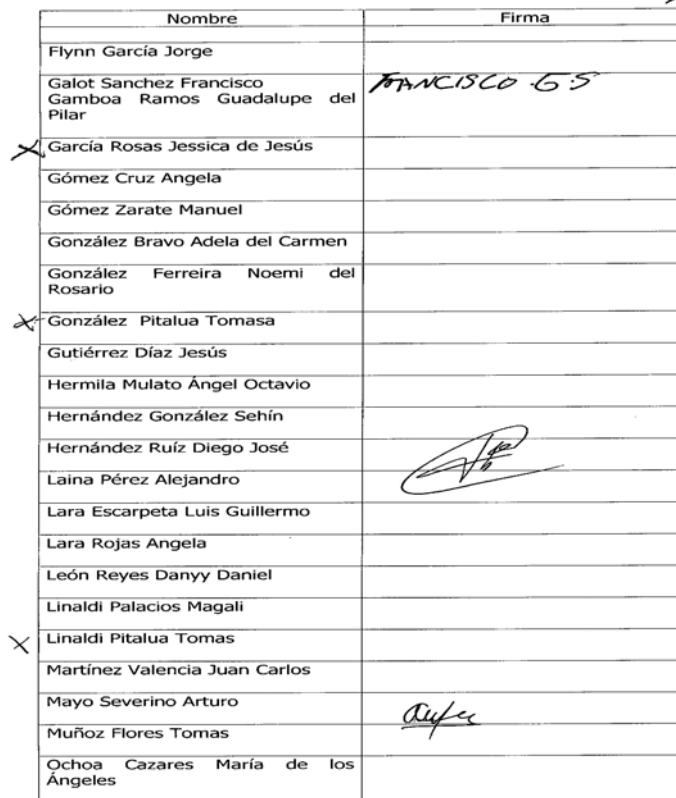 Nombre Firma
Flynn García Jorge
Galot Sanchez Francisco FRANCISCO G.S
Gamboa Ramos Guadalupe del
Pilar
X García Rosas Jessica de Jesús
Gómez Cruz Angela
Gómez Zarate Manuel
González Bravo Adela del Carmen
González Ferreira Noemi del
Rosario
X González Pitalua Tomasa
Gutiérrez Díaz Jesús
Hermila Mulato Ángel Octavio
Hernández González Sehín
Hernández Ruíz Diego José
Laina Pérez Alejandro
Lara Escarpeta Luis Guillermo
Lara Rojas Angela
León Reyes Danyy Daniel
Linaldi Palacios Magali
X Linaldi Pitalua Tomas
Martínez Valencia Juan Carlos
Mayo Severino Arturo
Muñoz Flores Tomas
Ochoa Cazares María de los
Ángeles